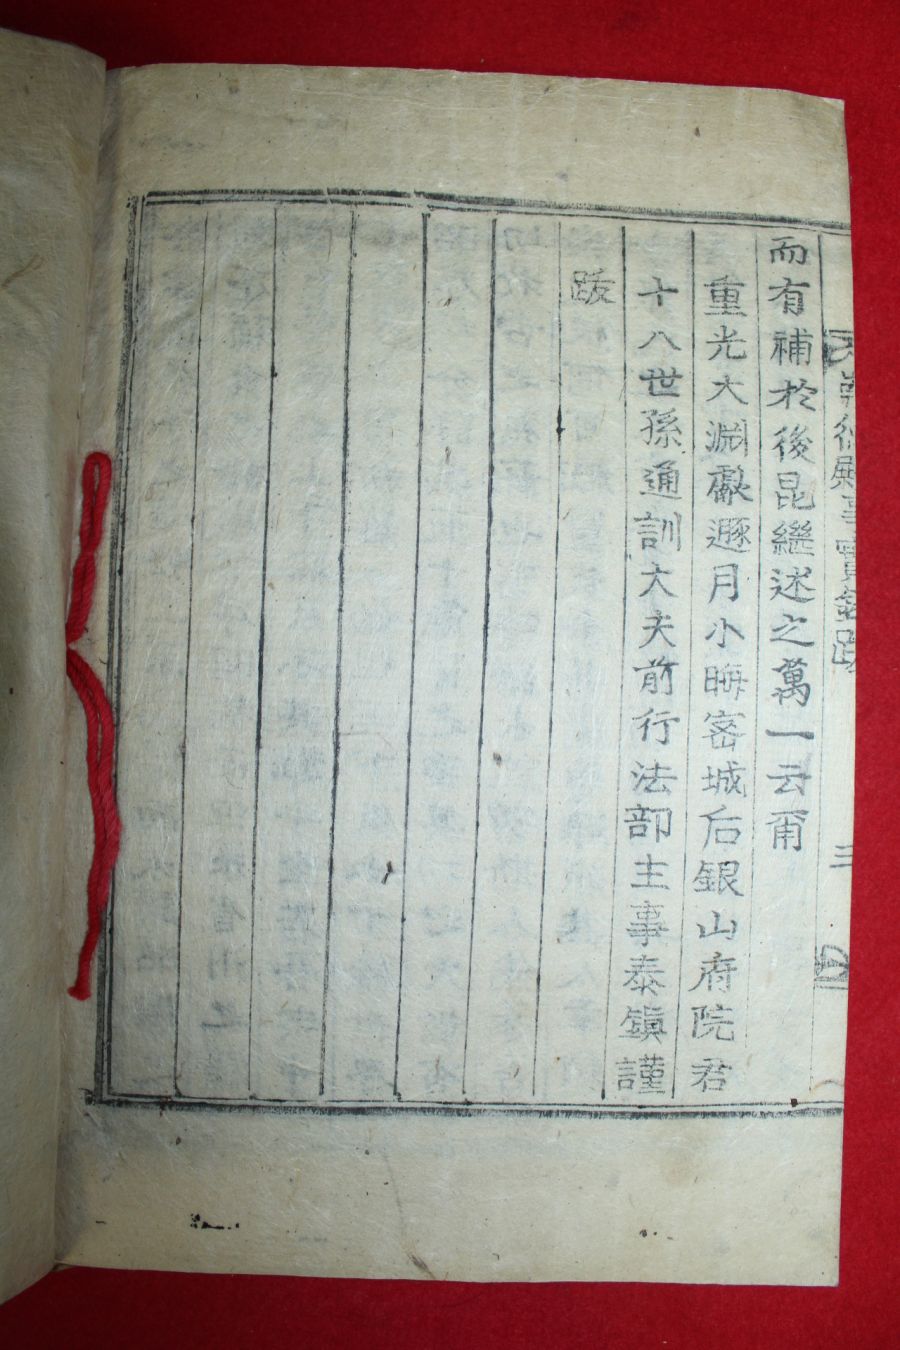 崇德殿事實錄跋
三
而有補於後昆繼述之萬一云爾
重光大淵獻遯月小晦密城后銀山府院君
十八世孫通訓大夫前行法部主事泰鎭謹
跋